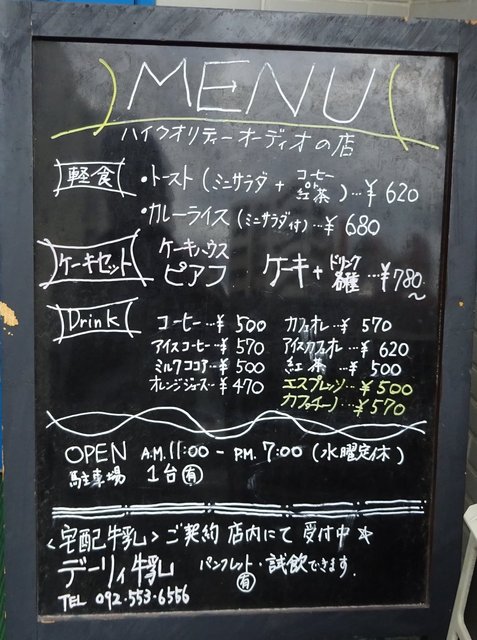 MENU
ハイクオリティーオーディオの店
軽食 ・トースト(ミニサラダ + コーヒー or 紅茶)…¥620
・カレーライス(ミニサラダ付)…¥680
ケーキセット ケーキハウス ピアフ ケーキ+ドリンク各種…¥780~
Drink コーヒー…¥500 カフェオレ…¥570
アイスコーヒー…¥570 アイスカフェオレ…¥620
ミルクココア…¥500 紅茶…¥500
オレンジジュース…¥470 エスプレッソ…¥500
カプチーノ…¥570
OPEN A.M.11:00 - P.M.7:00(水曜定休)
駐車場 1台㊒
<宅配牛乳>ご契約店内にて受付中☆
デーリィ牛乳 パンフレット・試飲できます.
㊒
TEL 092-553-6556